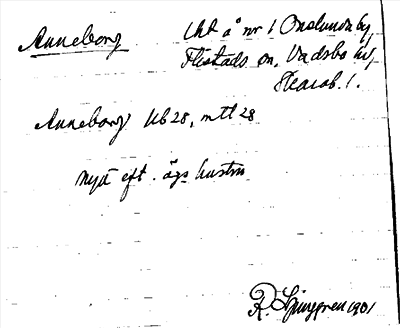 Anneborg
Uht å nr 1 Onslunda by,
Flistads sn, Vadsbo hd,
Skarab. l.
Anneborg Ub 28, mtl 28
nytt eft. ägs hustru
R. Ljunggren 1901